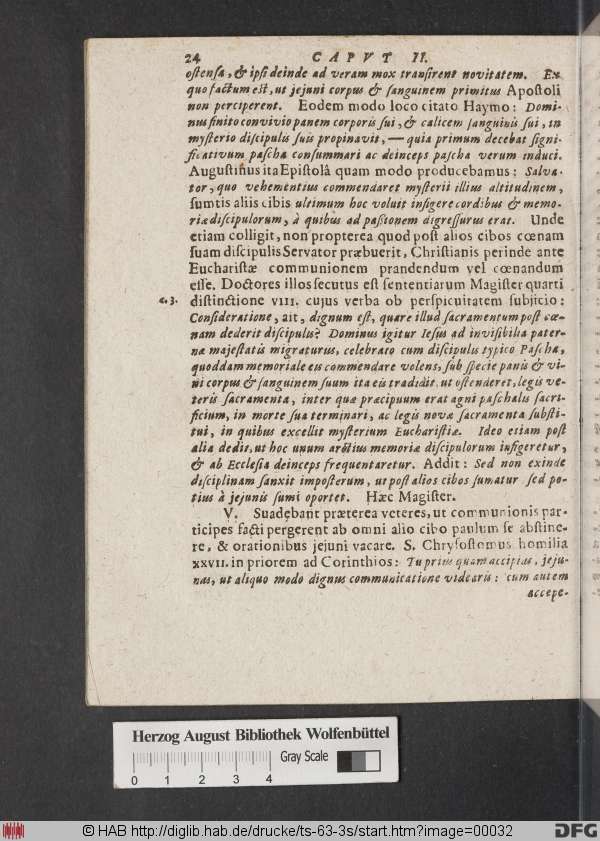 24 CAPVT II.
ostensa, & ipsi deinde ad veram mox transirent novitatem. Ex
quo factum est, ut jejuni corpus & sanguinem primitus Apostoli
non perciperent. Eodem modo loco citato Haymo: Domi-
nus finito convivio panem corporis sui, & calicem sanguinis sui, in
mysterio discipulis suis propinavit, — quia primum decebat signi-
ficativum pascha consummari ac deinceps pascha verum induci.
Augustinus ita Epistolâ quam modo producebamus: Salva-
tor, quo vehementius commendaret mysterii illius altitudinem,
sumtis aliis cibis ultimum hoc voluit infigere cordibus & memo-
riæ discipulorum, à quibus ad passionem digressurus erat. Unde
etiam colligit, non propterea quod post alios cibos cœnam
suam discipulis Servator præbuerit, Christianis perinde ante
Eucharistiæ communionem prandendum vel cœnandum
esse. Doctores illos secutus est sententiarum Magister quarti
c. 3. distinctione VIII. cujus verba ob perspicuitatem subjicio:
Consideratione, ait, dignum est, quare illud sacramentum post cœ-
nam dederit discipulis? Dominus igitur Iesus ad invisibilia pater-
næ majestatis migraturus, celebrato cum discipulis typico Pascha,
quoddam memoriale eis commendare volens, sub specie panis & vi-
ni corpus & sanguinem suum ita eis tradidit. ut ostenderet, legis ve-
teris sacramenta, inter quæ præcipuum erat agni paschalis sacri-
ficium, in morte sua terminari, ac legis novæ sacramenta substi-
tui, in quibus excellit mysterium Eucharistiæ. Ideo etiam post
alia dedit, ut hoc unum arctius memoriæ discipulorum infigeretur,
& ab Ecclesia deinceps frequentaretur. Addit: Sed non exinde
disciplinam sanxit imposterum, ut post alios cibos sumatur sed po-
tius à jejunis sumi oportet. Hæc Magister.
V. Suadebant præterea veteres, ut communionis par-
ticipes facti pergerent ab omni alio cibo paulum se abstine-
re, & orationibus jejuni vacare. S. Chrysostomus homilia
XXVII. in priorem ad Corinthios: Tu prius quam accipias, jeju-
nas, ut aliquo modo dignus communicatione videaris: cum autem
accepe-
Herzog August Bibliothek Wolfenbüttel
Gray Scale
0 1 2 3 4
© HAB http://diglib.hab.de/drucke/ts-63-3s/start.htm?image=00032
DFG